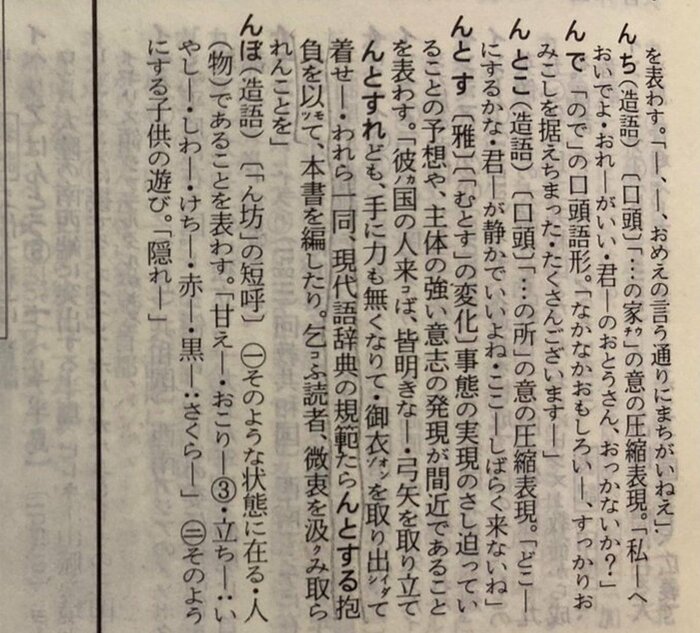 を表わす。「―、―、おめえの言う通りにまちがいねえ」
んち（造語）〔口頭〕「…の家ﾁｳ」の意の圧縮表現。「私―へ
おいでよ・おれ―がいい・君―のおとうさん、おっかないか？」
んで 「ので」の口頭語形。「なかなかおもしろい―、すっかりお
みこしを据えちまった・たくさんございます―」
んとこ（造語）〔口頭〕「…の所」の意の圧縮表現。「どこ―
にするかな・君―が静かでいいよね・ここ―しばらく来ないね」
んとす〔雅〕〔「むとす」の変化〕事態の実現のさし迫ってい
ることの予想や、主体の強い意志の発現が間近であること
を表わす。「彼ｶ国の人来ｺば、皆明きな―・弓矢を取り立て
んとすれども、手に力も無くなりて・御衣ｵﾝｿﾞを取り出ｲﾀﾞｼて
着せ―・われら一同、現代語辞典の規範たらんとする抱
負を以ﾂﾓて、本書を編したり。乞ｺふ読者、微衷を汲ｸみ取ら
れんことを」
んぼ（造語）〔「ん坊」の短呼〕㊀そのような状態に在る・人
（物）であることを表わす。「甘え―・おこり―③・立ち―・い
やし―・しわ―・けち―・赤―・黒―・さくら―」㊁そのよう
にする子供の遊び。「隠れ―」